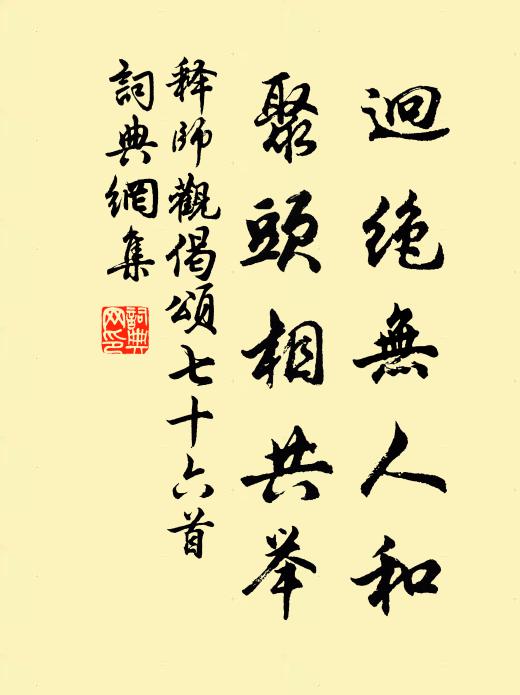 迥绝無人和
聚頭相共举
释師觀偈頌七十六首
詞典網集
詞典网印